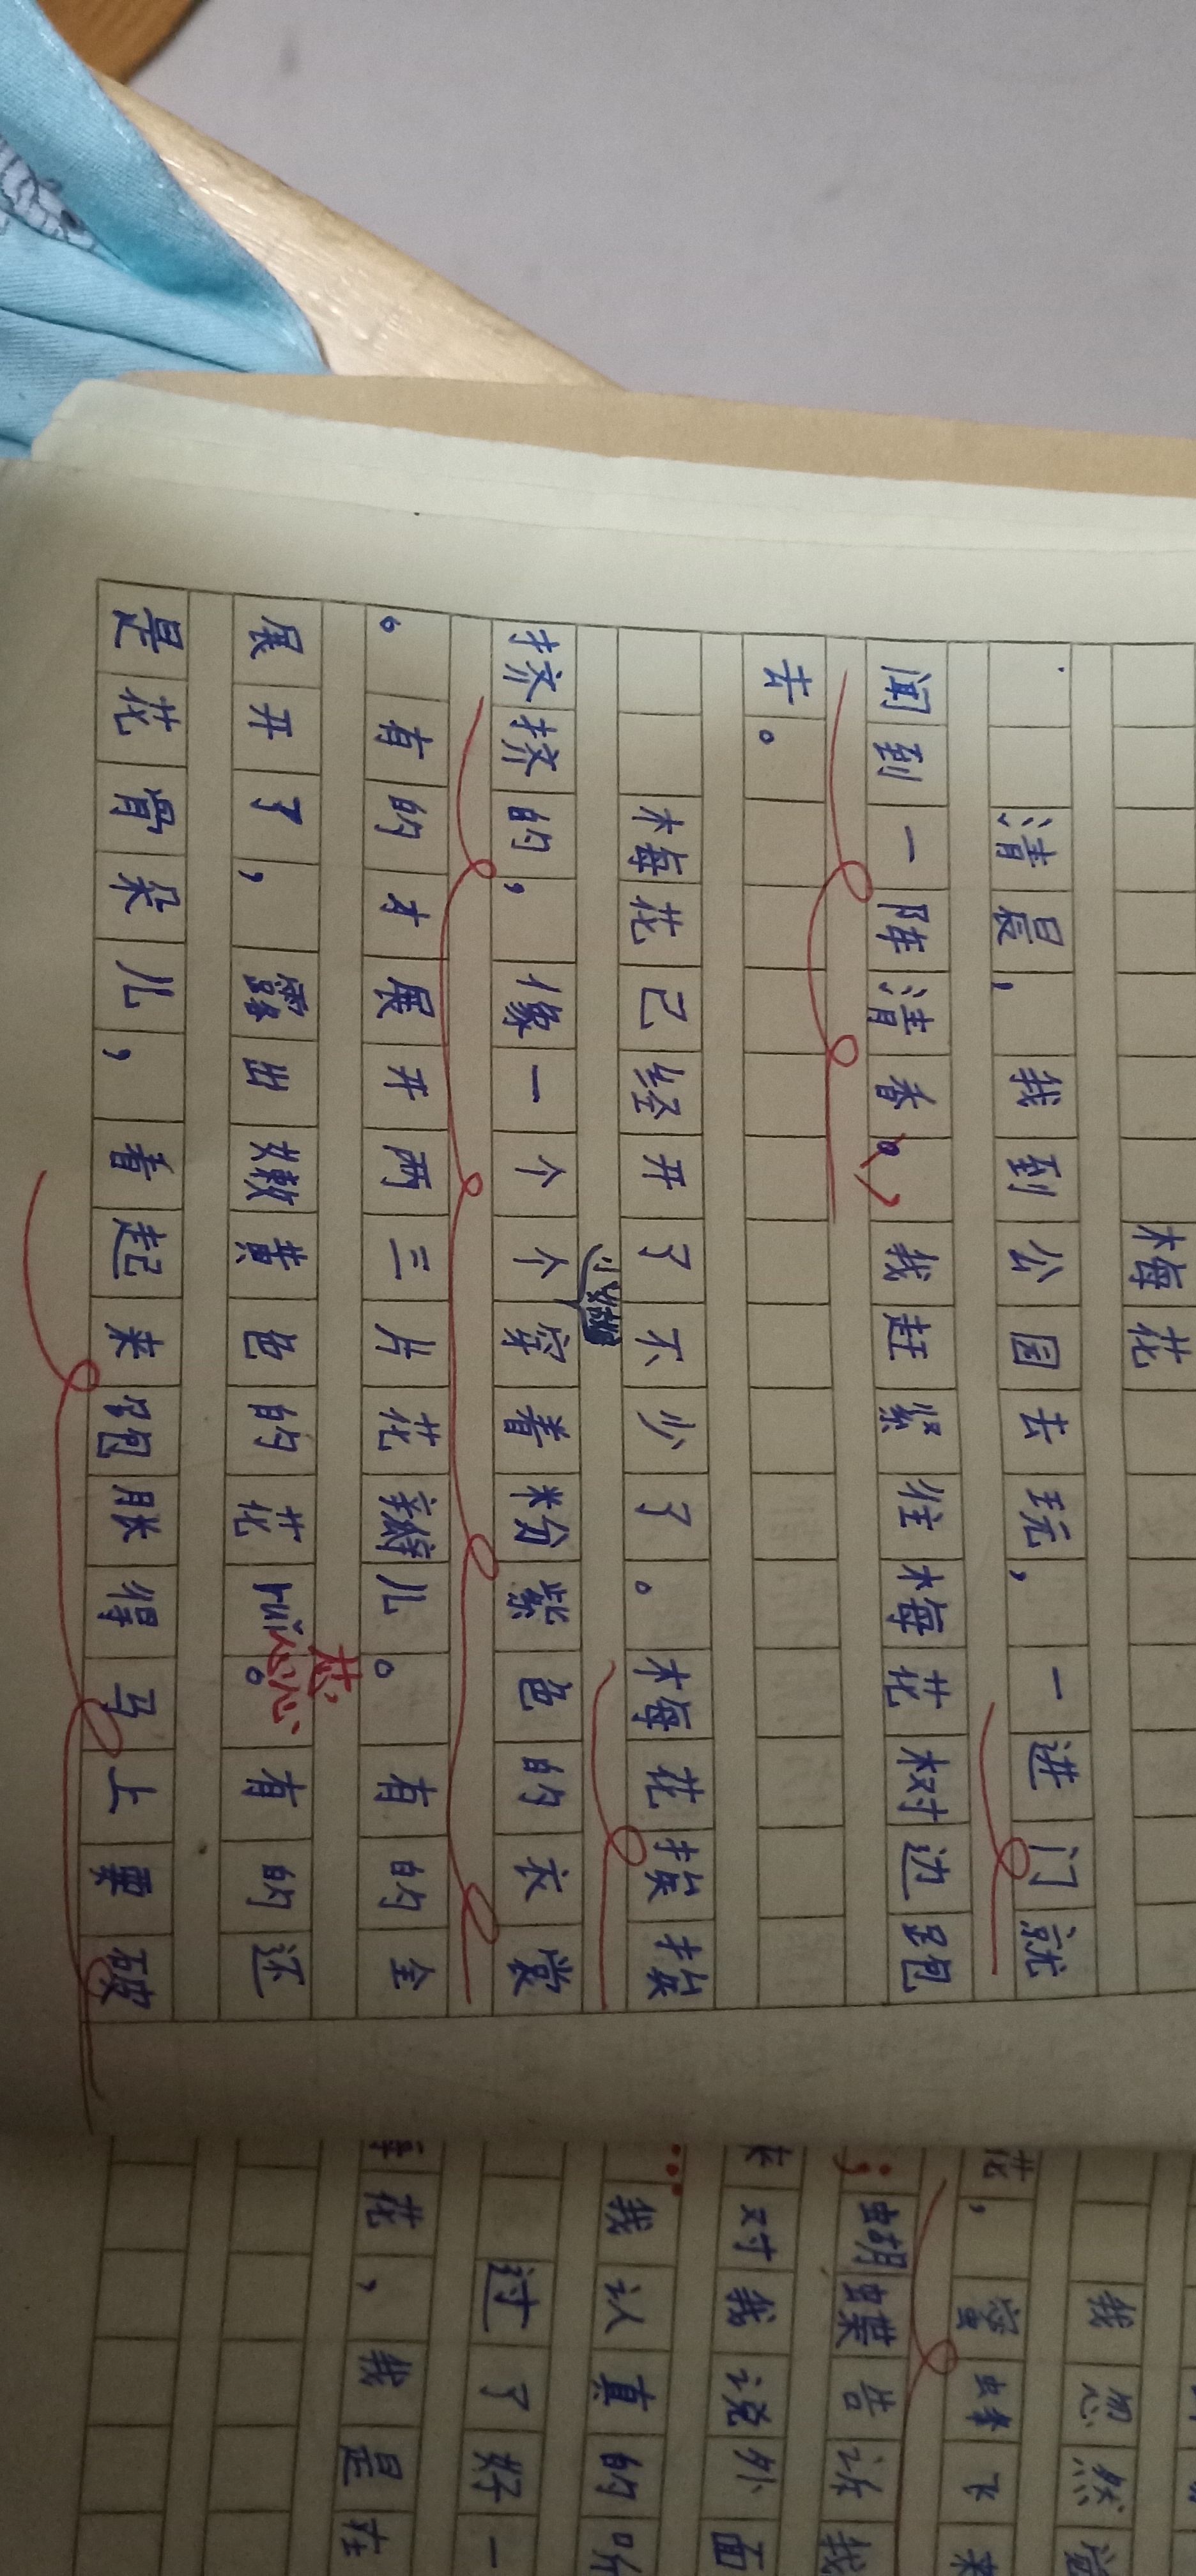 梅花
清晨，我到公园去玩，一进门就
闻到一阵清香，我赶紧往梅花树边跑
去。
梅花已经开了不少了。梅花挨挨
挤挤的，像一个个穿着粉紫色的衣裳
小姑娘
。有的才展开两三片花瓣儿。有的全
展开了，露出嫩黄色的花ruǐ。有的还
蕊
是花骨朵儿，看起来饱胀得马上要破
我忽然
花，蜜蜂飞来
；蝴蝶告诉我
来对我说外面
我认真的听
过了好一
花，我是在